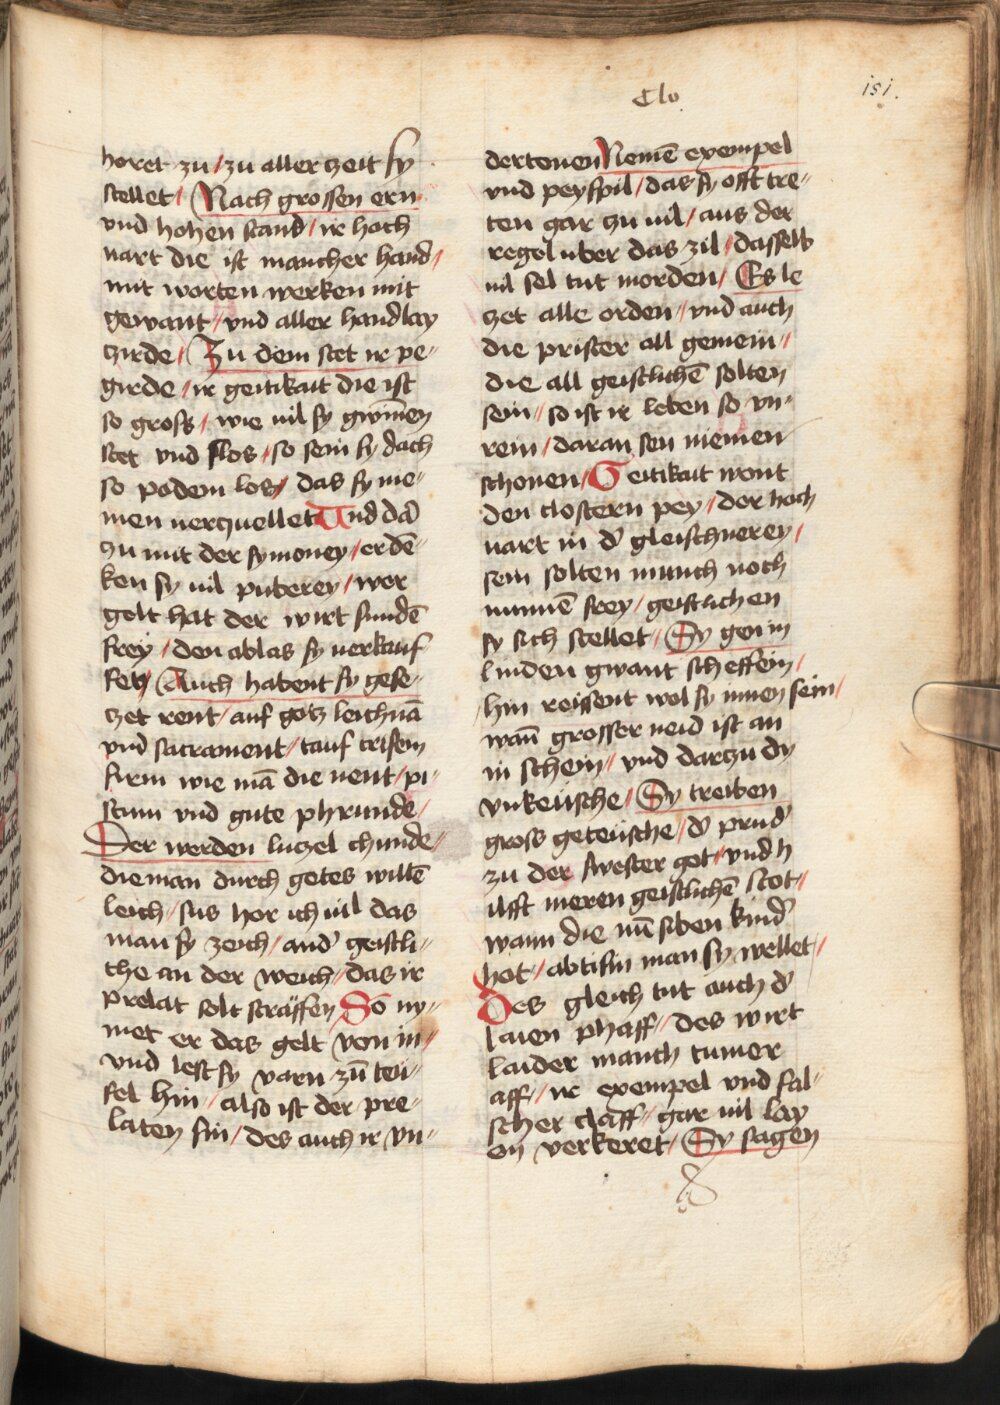 Clo
151.
horet zu / zu aller zeit sy
stellet / Nach grossen ern
vnd hohen stand / ir hoch
uart die ist mancher hand /
mit worten werken mit
gewant / vnd aller handlay
zirde / Zu dem stet ir pe-
girde / ir geitikait die ist
so gross / wie uil sy gwin̄en
stet vnd slos / so sein sy dach
so podem los / das sy nie-
men uerquellet Vnd da
zu mit der symoney / erdē-
ken sy uil puberey / wer
gelt hat der wirt sundē
frey / den ablas sy uerkauf
fet / Auch habent sy gese-
tzet rent / auf gotz leichnā
vnd sacrament / tauf crisem
firm wie mā die nent / pi-
stum vnd gute phrunde /
Der werden luczel chunde /
die man durch gotes willē
leich / sus hor ich uil das
man sy zeich / and' geistli-
che an der weich / das ir
prelat solt straffen So ny-
met er das gelt von in /
vnd lest sy varn zū teu-
fel hin / also ist der pre-
laten sin / des auch ir vn-
dertonen Nemē exempel
vnd peyspil / das sy offt tre-
ten gar zu uil / aus der
regel uber das zil / dasselb
uil sel tut morden / Es le
tzet alle orden / vnd auch
die prister all gemein /
die all geistlichē solten
sein / so ist ir leben so vn-
rein / daran sen niemen
schonen / Geitikait wont
den clostern pey / der hoch
uart in d' gleischnerey /
sein solten munch noch
nunnē frey / geistlichen
sy sich stellet / Sy gen in
linden gwant scheffein /
hin reissent wol sy innen sein /
wan̄ grosser neid ist an
in schein / vnd darzu dy
vnkeusche / Sy treiben
gross geteusche / d' prud'
zu der swester get / vnd h
ilfft meren geistlichē stot /
wann die nū siben kind'
hot / abtisin man sy wellet /
Des gleich tut auch d'
laien phaff / des wirt
laider manch tumer
aff / ir exempel vnd fal-
scher claff / gar uil lay
en verkeret / Sy sagen